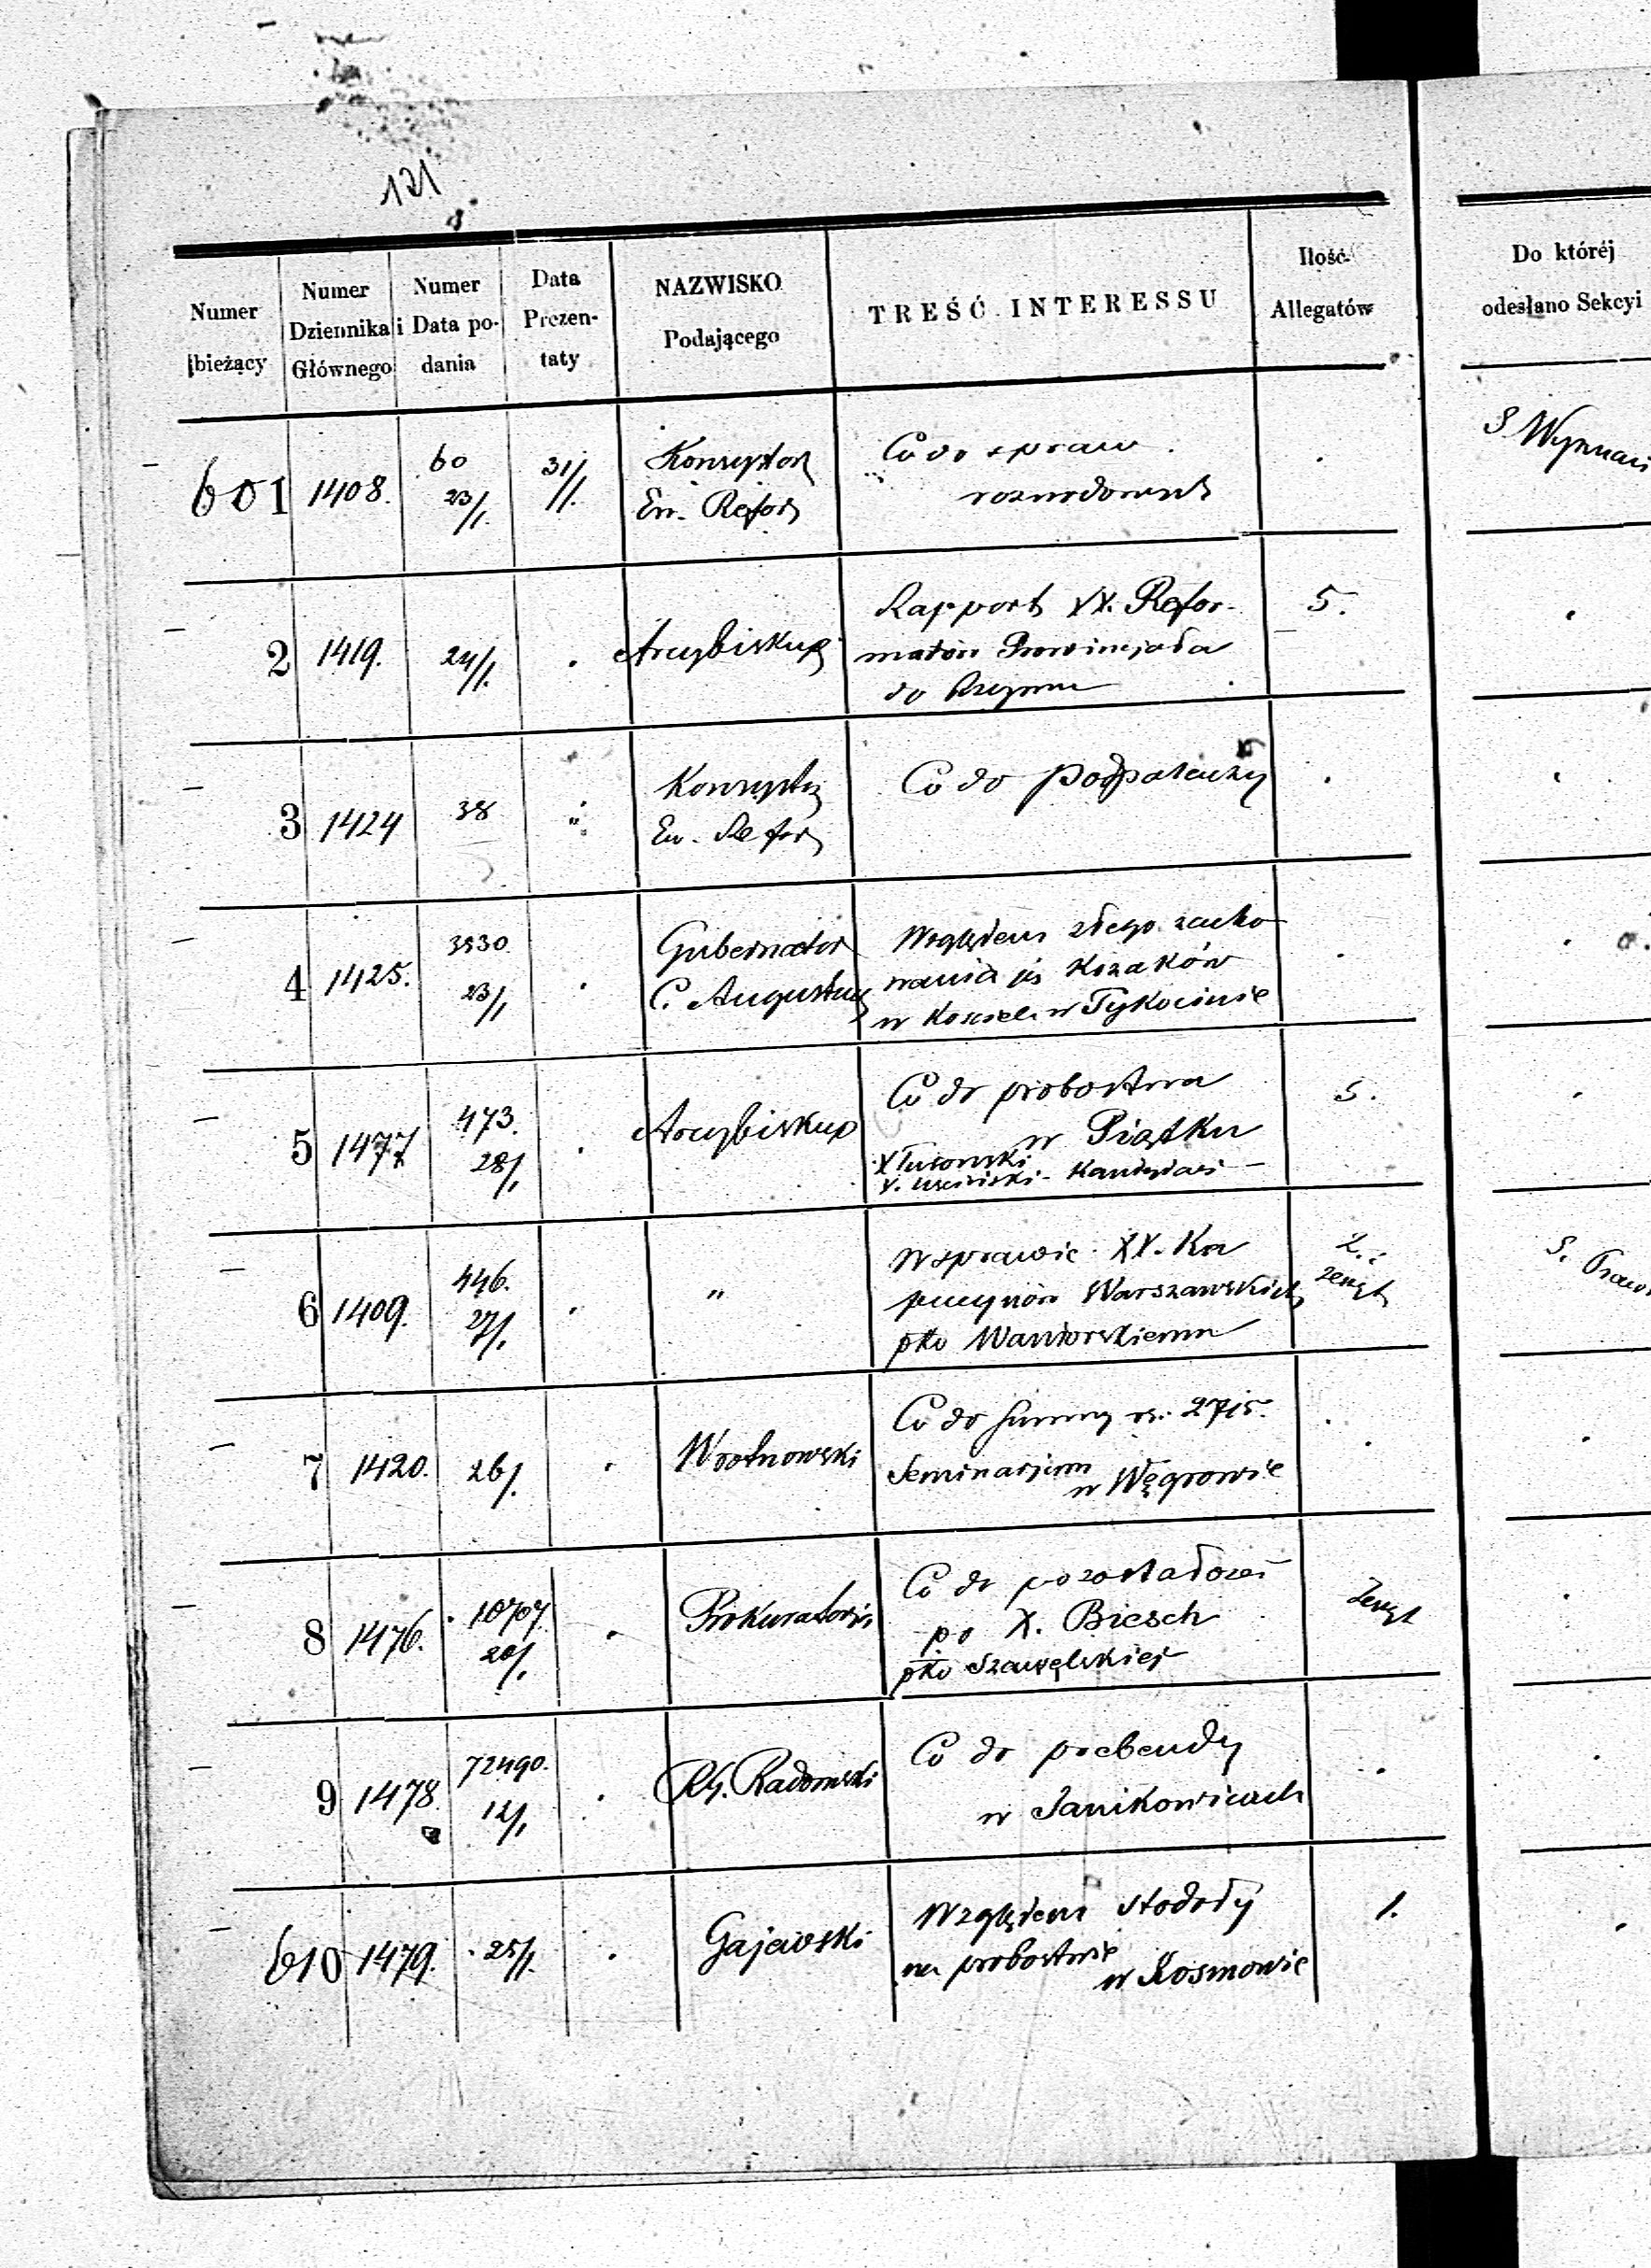 121
Numer
bieżący
Numer
Dziennika
Głównego
Numer
i Data po-
dania
Data
Prezen-
taty
NAZWISKO
Podającego
TREŚĆ INTERESSU
Ilość
Allegatów
Do któréj
odesłano Sekcyi
601 1408. 60 23/1. 31/1. Konsystorz
Ew. Refor
Co do spraw
rozwodowych
S Wyznań
2 1419. 24/1. . Arcybiskup
Rapport XX. Refor-
matów Prowincjała
do Rzymu
5.
3 1424 38 " Konsystz
Ew. Refor
Co do podpałaczy
4 1425. 3530 23/1 . Gubernator
C. Augustow
Względem złego zacho
wania się Kozaków
w Kosciele w Tykocinie
5 1477 473. 28/1 . Arcybiskup
Co do probostwa
w Piątku
X Turowski
X. Kandydaci
5.
6 1409. 446. 27/1. . "
W sprawie XX. Ka
pucynów Warszawskich
pko Wantorskiemu
2.
zeszyt
S. Praw
7 1420. 26/1. . Wrotnowski
Co do summy rs. 2715.
Seminarjum
w Węgrowie
8 1476. 10707 20/1. . Prokuratorja
Co do pozostałości
po X. Biesch
pko Szawelskiej
Zeszyt
9 1478. 72490. 12/1 . RG. Radomski
Co do prebendy
w Janikowicach
610 1479. 25/1. . Gajewski
Względem stodoły
na probostwie
w Kosmowie
1.